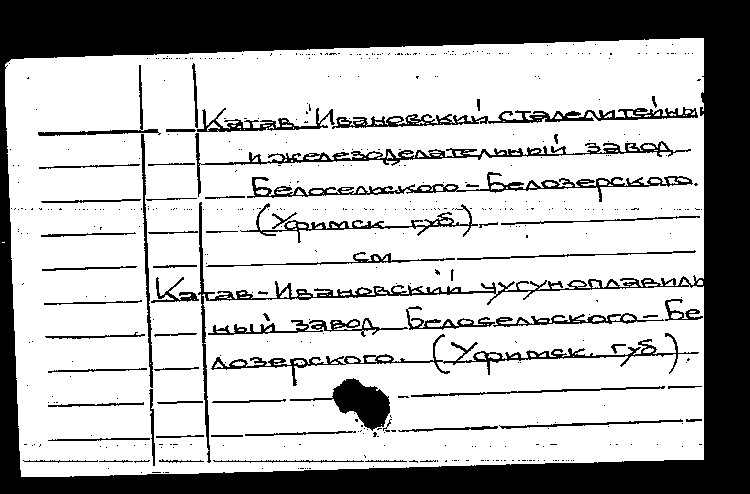 Катав-Ивановский сталелитейный
и железоделательный завод
Белосельского-Белозерского.
(Уфимск. губ.)
см.
Катав-Ивановский чугуноплавиль
ный завод Белосельского-Бе
лозерского. (Уфимск. губ.).